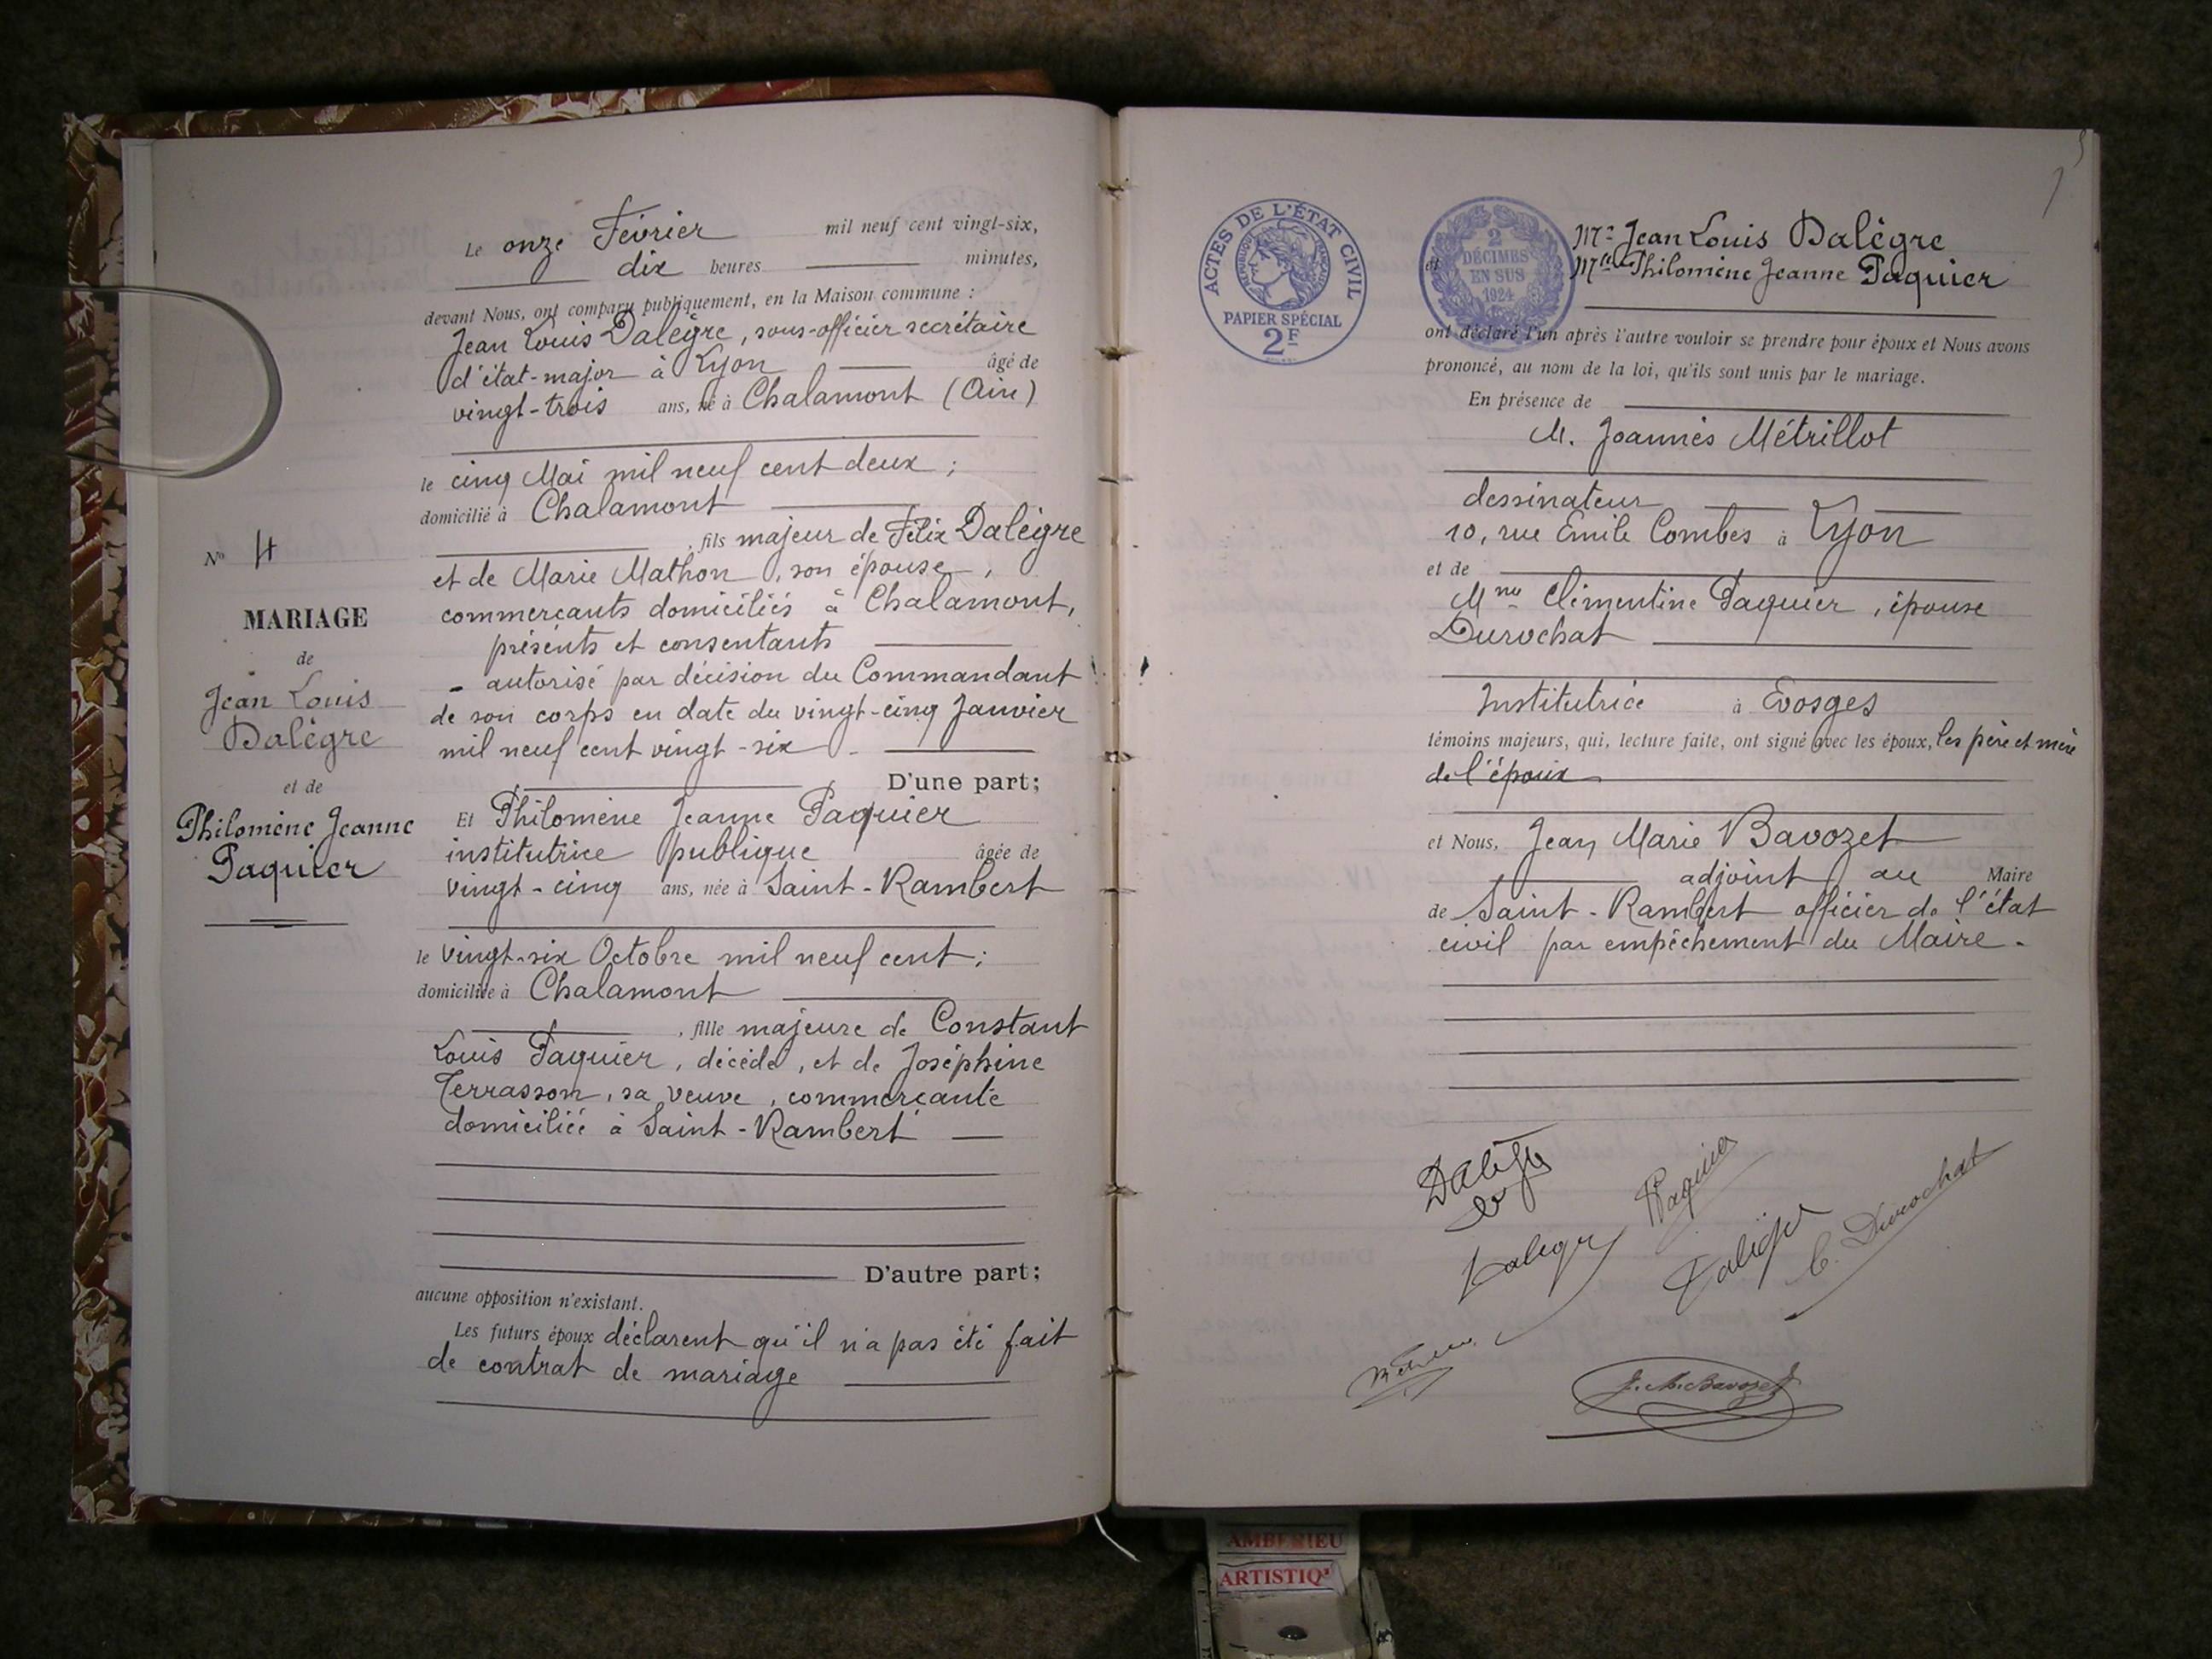 Le onze Février mil neuf cent vingt-six,
dix heures minutes,
devant Nous, ont comparu publiquement, en la Maison commune :
Jean Louis Dalègre, sous-officier secrétaire
d'état-major à Lyon âgé de
vingt-trois ans, né à Chalamont (Ain)
le cinq Mai mil neuf cent deux ;
domicilié à Chalamont
, fils majeur de Félix Dalègre
et de Marie Mathon, son épouse,
commerçants domiciliés à Chalamont,
présents et consentants
- autorisé par décision du Commandant
de son corps en date du vingt-cinq Janvier
mil neuf cent vingt-six -
D'une part;
Et Philomène Jeanne Paquier
institutrice publique âgée de
vingt-cinq ans, née à Saint-Rambert
le vingt-six Octobre mil neuf cent ;
domiciliée à Chalamont
, fille majeure de Constant
Louis Paquier, décédé, et de Joséphine
Terrasson, sa veuve, commerçante
domiciliée à Saint-Rambert
D'autre part;
aucune opposition n'existant.
Les futurs époux déclarent qu'il n'a pas été fait
de contrat de mariage
No 4
MARIAGE
de
Jean Louis
Dalègre
et de
Philomène Jeanne
Paquier
ACTES DE L'ÉTAT CIVIL
RÉPUBLIQUE FRANÇAISE
PAPIER SPÉCIAL
2F
2
DÉCIMES
EN SUS
1924
Mr Jean Louis Dalègre
et Melle Philomène Jeanne Paquier
ont déclaré l'un après l'autre vouloir se prendre pour époux et Nous avons
prononcé, au nom de la loi, qu'ils sont unis par le mariage.
En présence de
M. Joannès Métrillot
dessinateur
10, rue Emile Combes à Lyon
et de
Mme Clémentine Paquier, épouse
Durochat
Institutrice à Evosges
témoins majeurs, qui, lecture faite, ont signé avec les époux, les père et mère
de l'époux
et Nous, Jean Marie Bavozet
adjoint au Maire
de Saint-Rambert officier de l'état
civil par empêchement du Maire.
Dalègre
Paquier
Dalègre
Dalègre
C. Durochat
J. M. Bavozet
AMBERIEU
ARTISTIQ